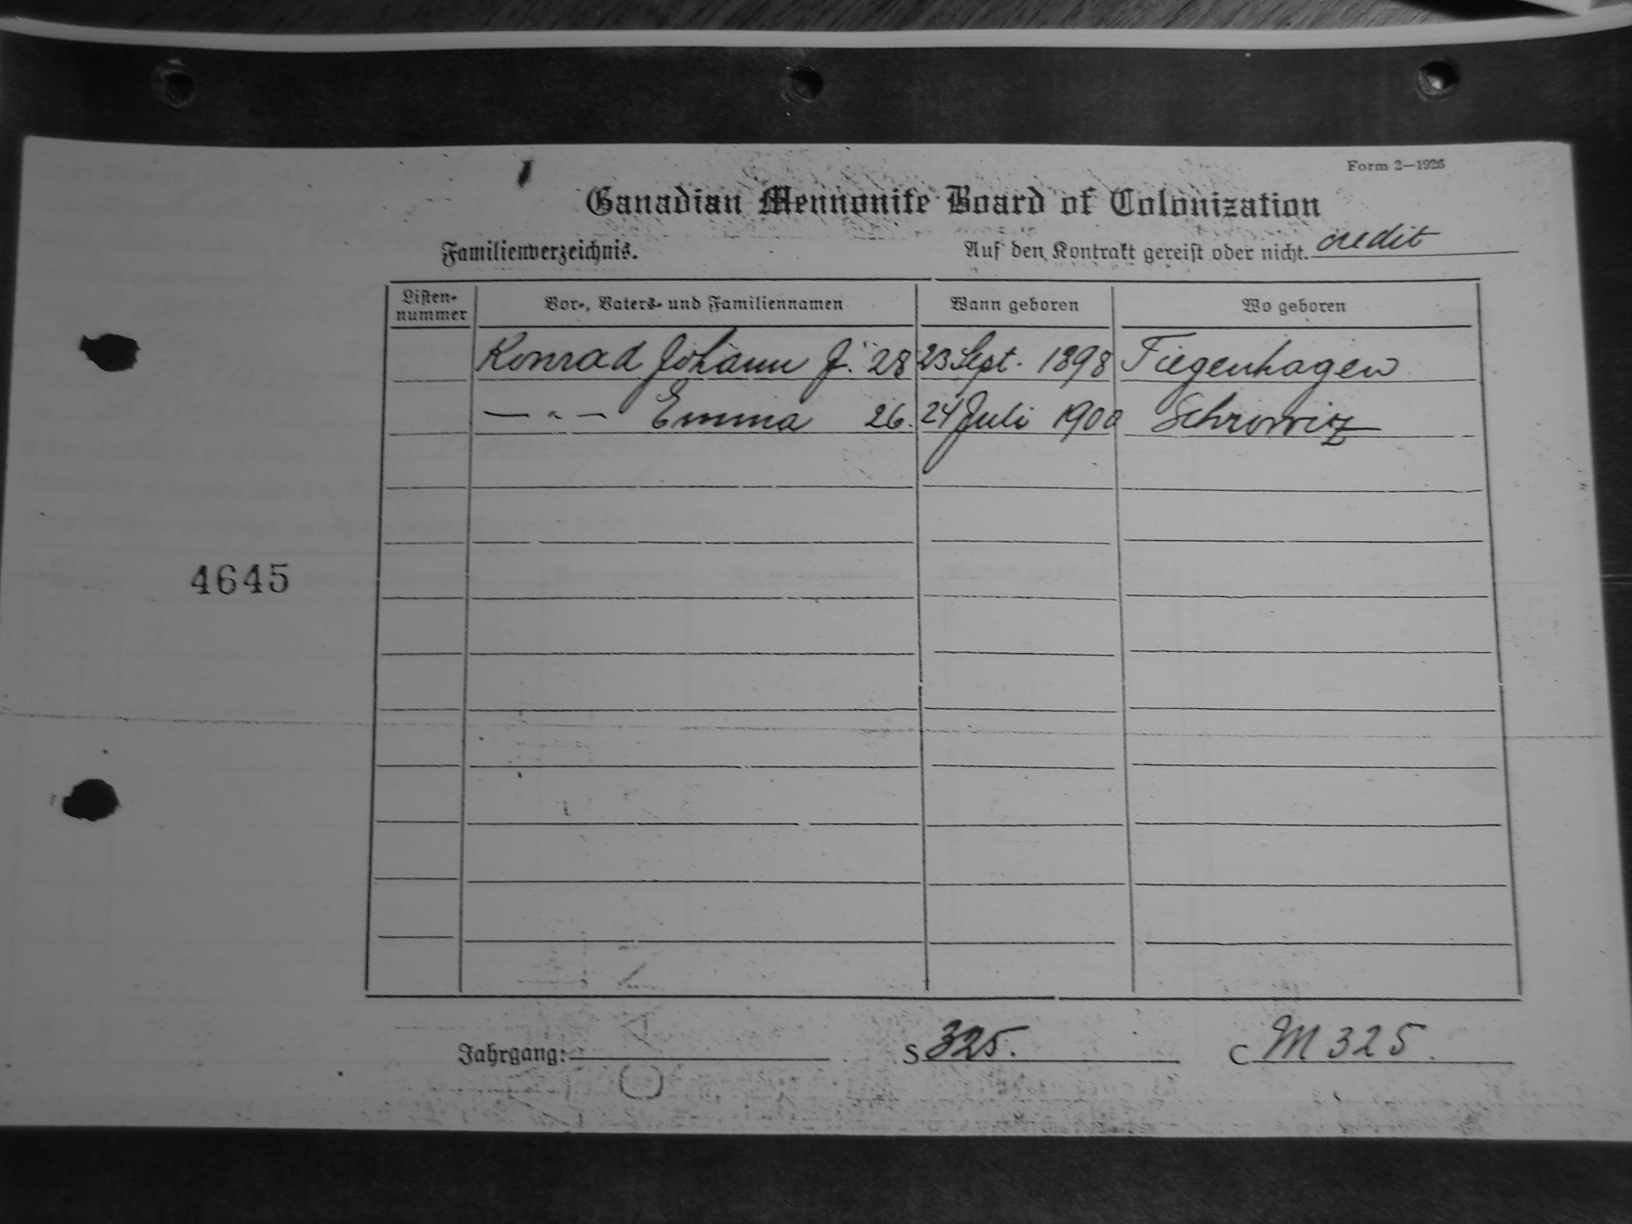 Form 2—1926
Canadian Mennonite Board of Colonization
Familienverzeichnis. Auf den Kontrakt gereist oder nicht. credit
Listen-nummer Vor-, Vaters- und Familiennamen Wann geboren Wo geboren
Konrad Johann J. 28 23 Sept. 1898 Tiegenhagen
— " — Emma 26. 24 Juli 1900
4645
Jahrgang: S 325. C M 325.